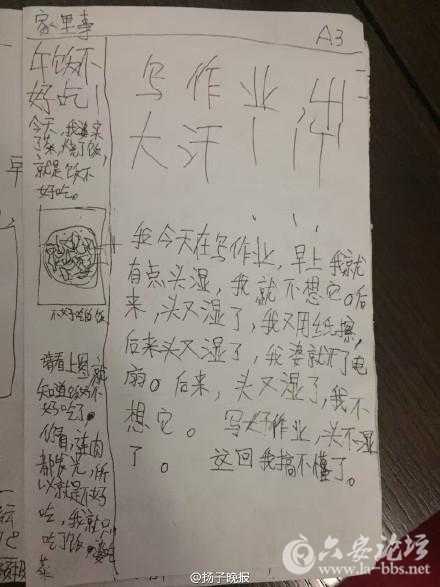 家里事
A3
午饭不
好吃!
就是饭不
好吃。
不好吃的饭
请看上图就
知道饭不
好吃了。
你看,连肉
都发光,所
以就是不好
吃,我就只
吃了饭。
菜
写作业,出
大汗!!!
我今天在写作业,早上我就
有点头湿,我就不想它。后
来,头又湿了,我又用纸擦,
后来头又湿了,我婆就开了电
扇。后来,头又湿了,我不
想它。写好作业,头不湿
了。这回我搞不懂了。
@扬子晚报
六安论坛
www.la-bbs.net